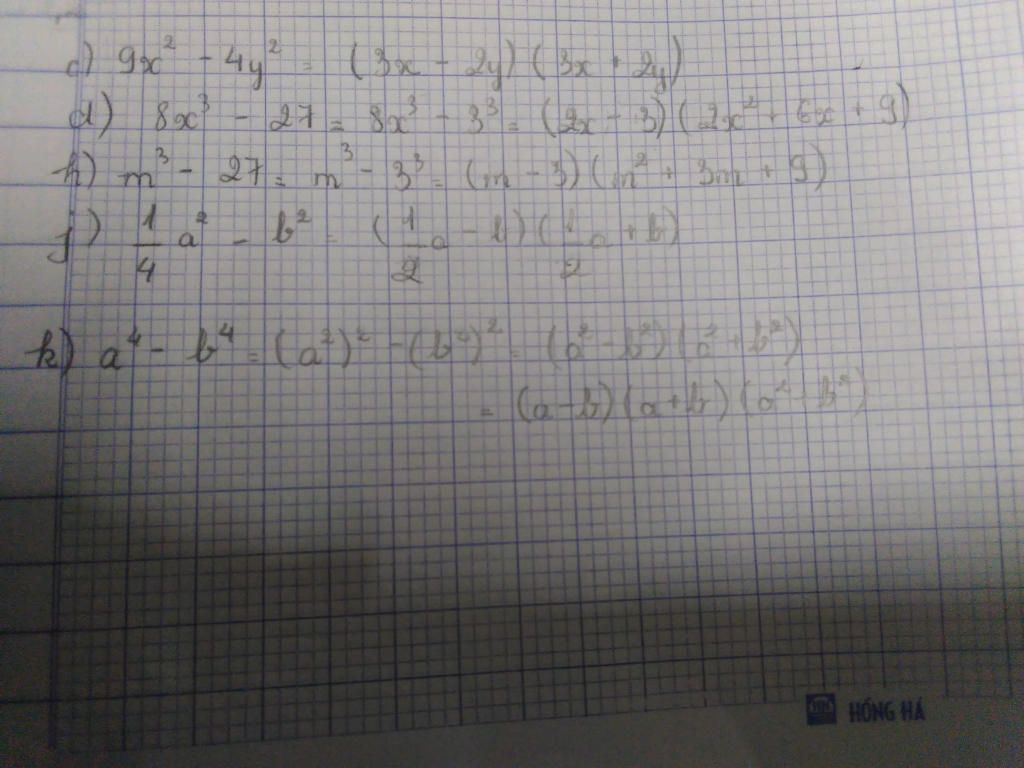 c) 9x² - 4y² = (3x - 2y)(3x + 2y)
d) 8x³ - 27 = 8x³ - 3³ = (2x - 3)(2x² + 6x + 9)
h) m³ - 27 = m³ - 3³ = (m - 3)(m² + 3m + 9)
j) 1/4 a² - b² = (1/2 a - b)(1/2 a + b)
k) a⁴ - b⁴ = (a²)² - (b²)² = (a² - b²)(a² + b²)
= (a - b)(a + b)(a² + b²)
HH HỒNG HÀ